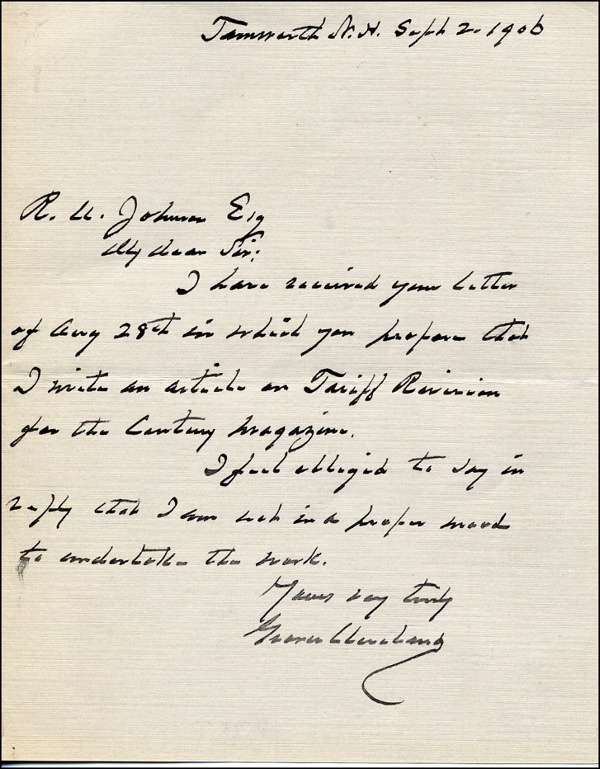 Tamworth N.H. Sept 2. 1906
R. U. Johnson Esq
My dear Sir:
I have received your letter
of Aug 28th in which you propose that
I write an article on Tariff Revision
for the Century Magazine.
I feel obliged to say in
reply that I am not in a proper mood
to undertake the work.
Yours very truly
Grover Cleveland